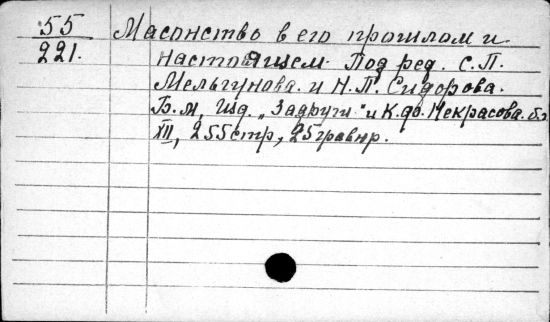 55 Масонство в его прошлом и
221. настоящем. Под ред. С.П.
Мельгунова. и Н.П. Сидорова.
Б.м, Изд. „Задруги" и К.до. Некрасова. б.г.
XII, 255 стр, 25 гравюр.